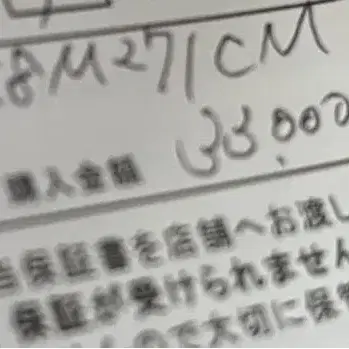 8M271CM
購入金額 33,000
保証書を店舗へお渡し
保証が受けられません
ので大切に保管